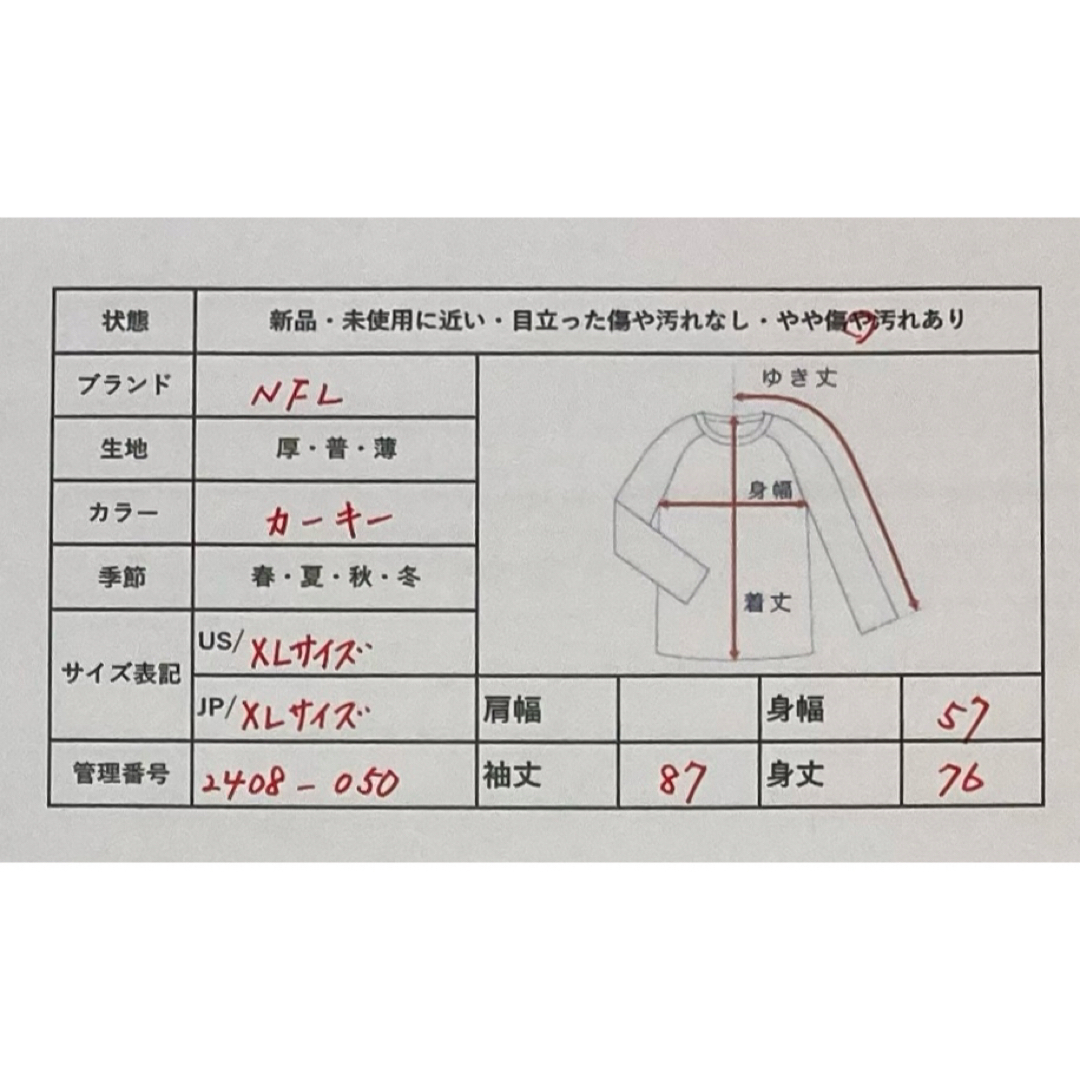 状態 新品・未使用に近い・目立った傷や汚れなし・やや傷や汚れあり
ブランド NFL
ゆき丈
生地 厚・普・薄
身幅
カラー カーキー
季節 春・夏・秋・冬
着丈
サイズ表記
US/ XLサイズ
JP/ XLサイズ
肩幅 身幅 57
管理番号 2408-050 袖丈 87 身丈 76